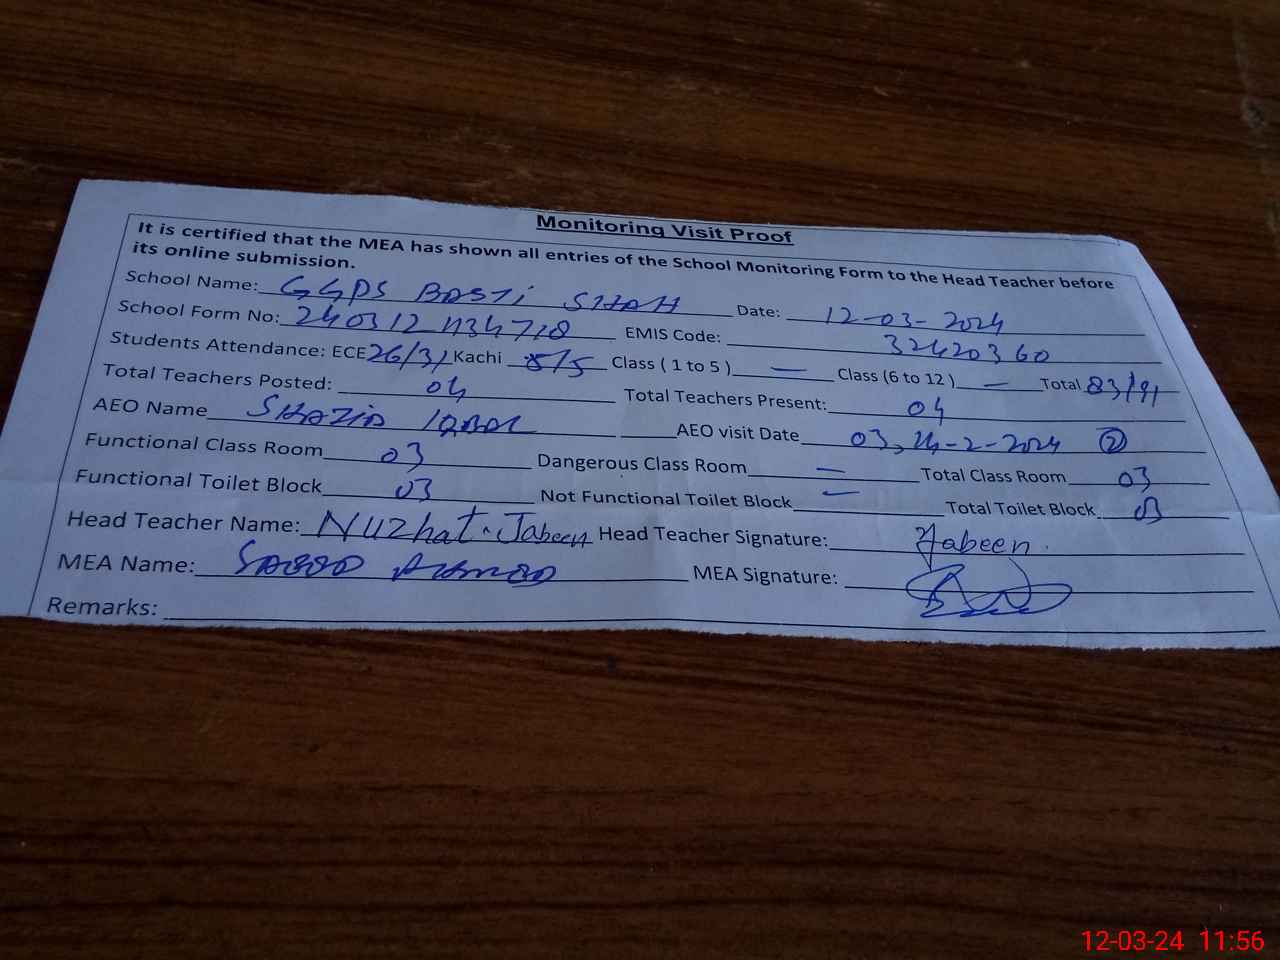 Monitoring Visit Proof
It is certified that the MEA has shown all entries of the School Monitoring Form to the Head Teacher before
its online submission.
School Name: GGPS BASTI SHAH Date: 12-03-2024
School Form No: 240312 EMIS Code: 32420360
Students Attendance: ECE 26/31 Kachi 5/5 Class ( 1 to 5 ) — Class (6 to 12 ) — Total 83/91
Total Teachers Posted: 04 Total Teachers Present: 04
AEO Name SHAZIA IQBAL AEO visit Date 03, 24-2-2024 ②
Functional Class Room 03 Dangerous Class Room — Total Class Room 03
Functional Toilet Block 03 Not Functional Toilet Block — Total Toilet Block 03
Head Teacher Name: Nuzhat Jabeen Head Teacher Signature: Jabeen.
MEA Name: AHMAD MEA Signature:
Remarks:
12-03-24 11:56